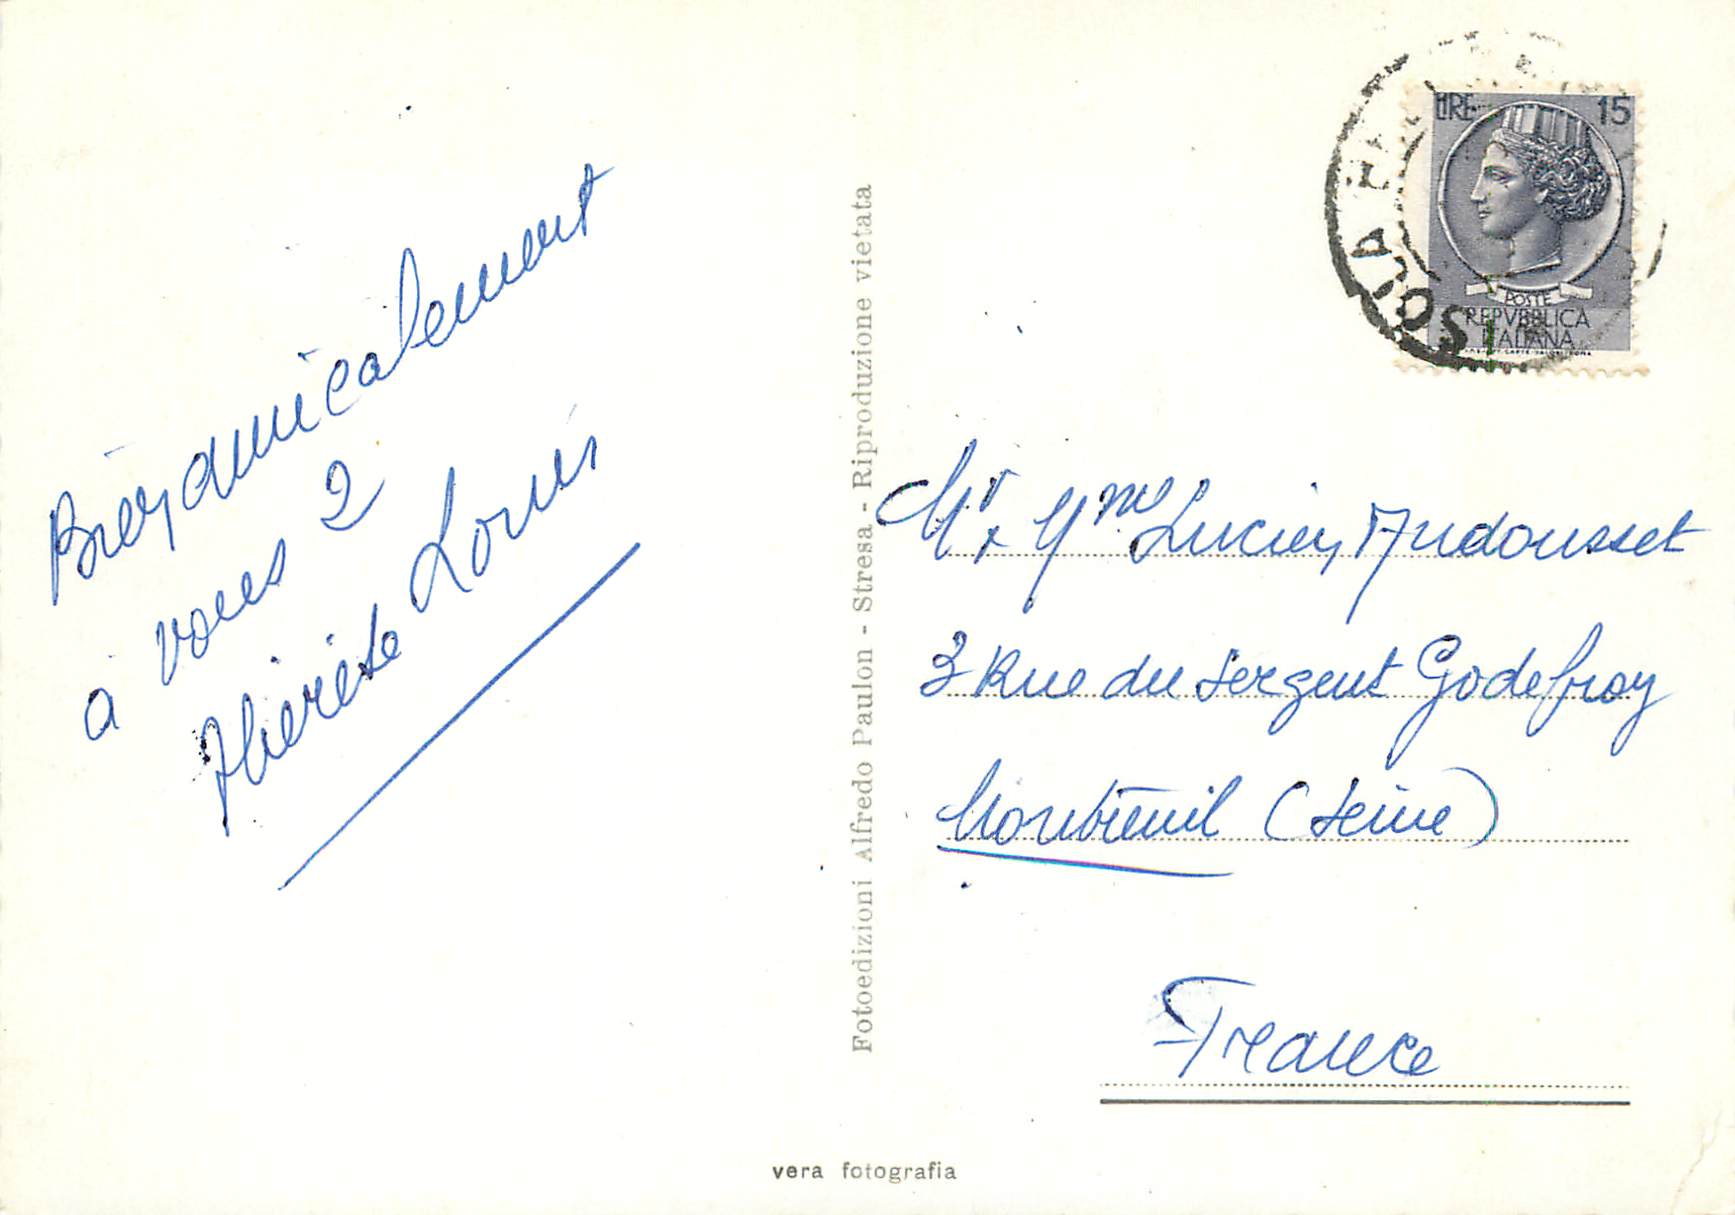 Bien amicalement
à vous 2
Thérèse Louis
Fotoedizioni Alfredo Paulon - Stresa - Riproduzione vietata
LIRE 15
POSTE
REPVBBLICA
ITALIANA
Mr & Mme Lucien Audousset
3 Rue du Sergent Godefroy
Montreuil (Seine)
France
vera fotografia